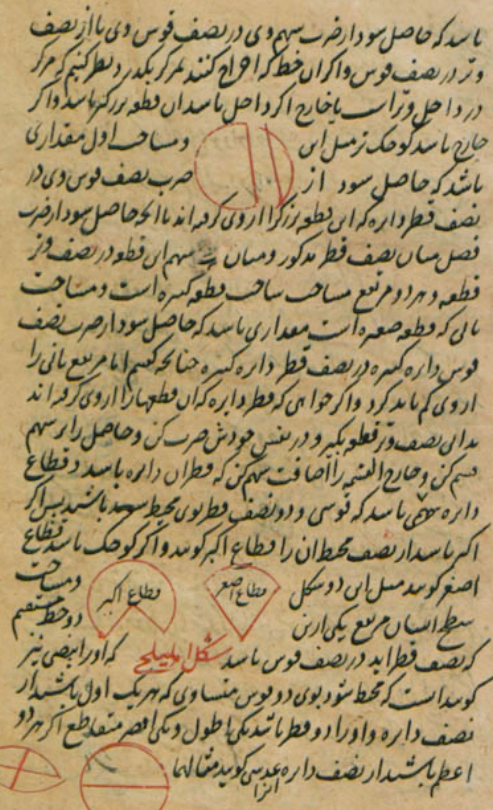 باشد که حاصل شود از ضرب سهم وی در نصف قوس وی یا از نصف
وتر در نصف قوس و اگر آن خط که اخراج کنند بمرکز بگذرد نظر کنیم که مرکز
در داخل وتر است یا خارج اگر داخل باشد آن قطعه بزرگتر باشد و اگر
خارج باشد کوچک‌تر مثل این و مساحت اول مقداری
باشد که حاصل شود از ضرب نصف قوس وی در
نصف قطر دایره که این قطعه بزرگ را از وی گرفته‌اند با آنچه حاصل شود از ضرب
فضل میان نصف قطر مذکور و میان سهم این قطعه در نصف وتر
قطعه و هر دو مربع مساحت قطعه کبیره است و مساحت
ثانی که قطعه صغیره است مقداری باشد که حاصل شود از ضرب نصف
قوس دایره کبیره در نصف قطر دایره کبیره چنانچه گفتیم اما مربع ثانی را
از وی کم باید کرد و اگر خواهی که قطر دایره که آن قطعها را از وی گرفته‌اند
بدانی نصف وتر قطعه بگیر و در نفس خودش ضرب کن و حاصل را بر سهم
قسم کن و خارج القسمه را اضافت سهم کن که قطر آن دایره باشد و قطاع
دایره سطحی باشد که قوسی و دو نصف قطر بوی محیط باشد پس اگر
اکبر باشد از نصف محیط آن را قطاع اکبر گویند و اگر کوچک باشد قطاع
اصغر گویند مثل این دو شکل
قطاع اصغر
قطاع اکبر
و مساحت
سطح ایشان مربع یکی از این دو خط مستقیم
که نصف قطر اند در نصف قوس باشد شکل اهلیلجی که او را بیضی نیز
گویند است که محیط شود بوی دو قوس متساوی که هر یک اول باشد از
نصف دایره و او را دو قطر باشد یکی اطول و یکی اقصر متقاطع اگر هر دو
اعظم باشد از نصف دایره آنرا عدسی گویند مثالهما